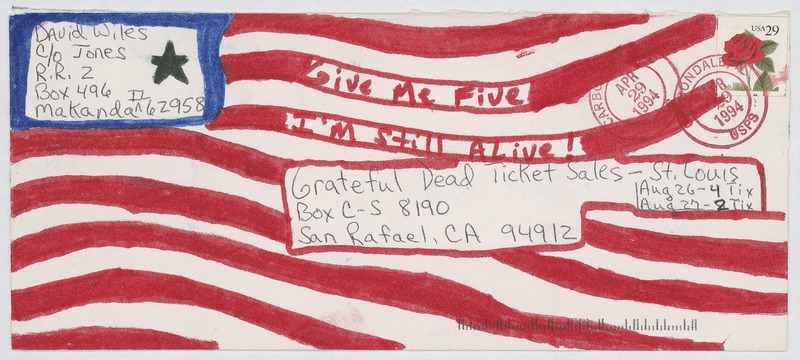 David Wiles
C/o Jones
R.R. 2
Box 496 IL
Makanda ^ 62958
USA 29
Give Me Five
I'm Still Alive!
CARBONDALE
APR
29
1994
APR
29
1994
USPS
Grateful Dead Ticket Sales - St. Louis
Aug 26 - 4 Tix
Aug 27 - 2 Tix
Box C-S 8190
San Rafael, CA 94912